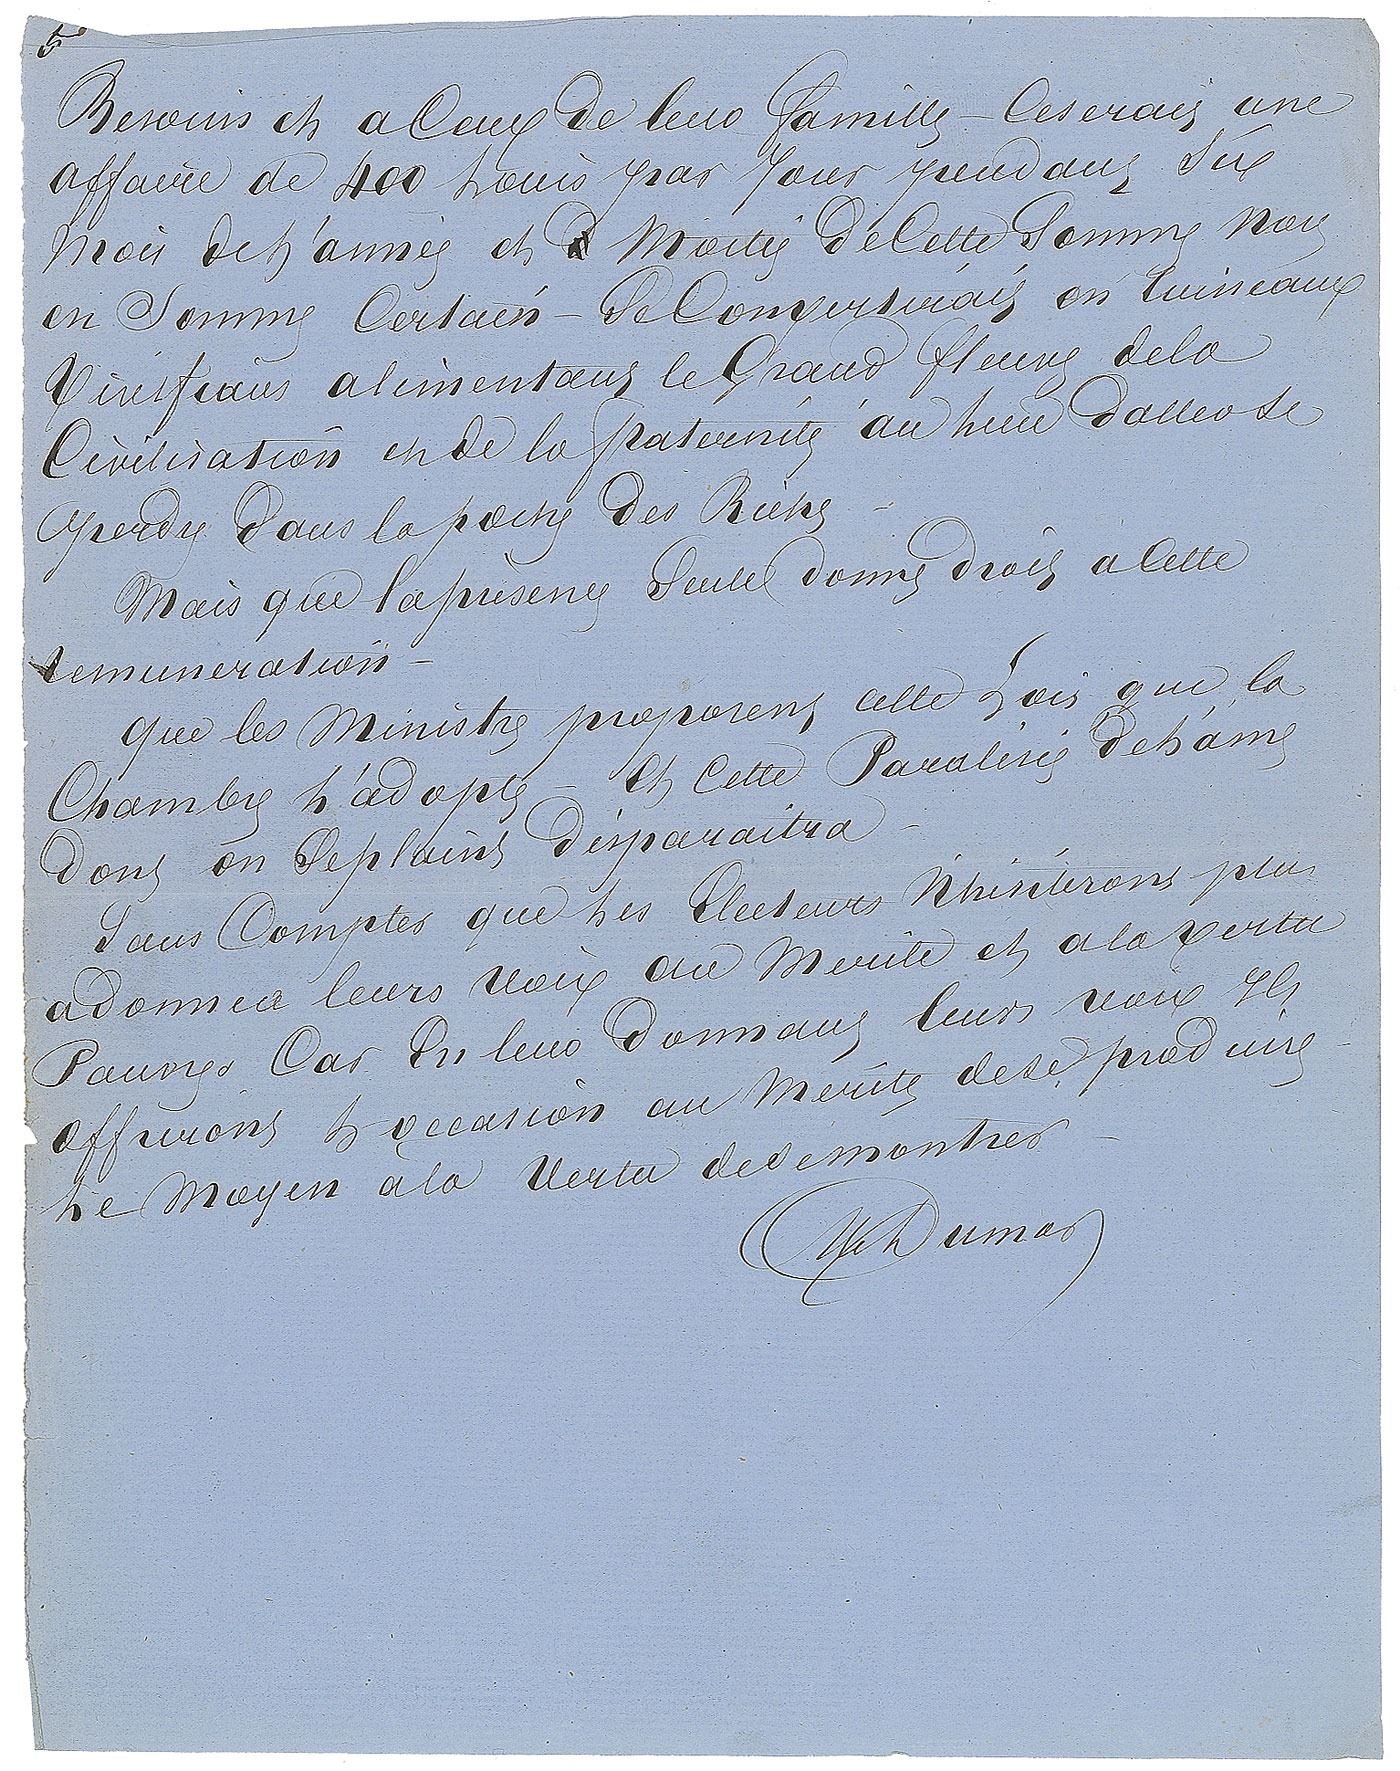 5
Besoins et a Ceux de leur famille – Ce serait une
affaire de 400 Louis par Jour pendant Six
Mois de L'année et Moitié de Cette Somme Mais
en Somme Certain – Se Convertirait en ruisseaux
Vivifiants alimentant le Grand fleuve de la
Civilisation et de la fraternité au Lieu d'aller se
perdre dans la poche des Riches –
Mais que la présence Seule donne droit a Cette
remunération –
que les Ministres proposent cette Lois que la
Chambre L'adopte – Et Cette Paralisie de L'âme
dont on Se plaint disparaitra –
Sans Compter que Les Electeurs N'hésiterons plus
a donner leurs voix au Merite et a la vertu
Pauvres Car En leur donnant leurs voix Ils
offrirons L'occasion au Merite de se produire
Le Moyen à la Vertu de se montrer –
Dumas